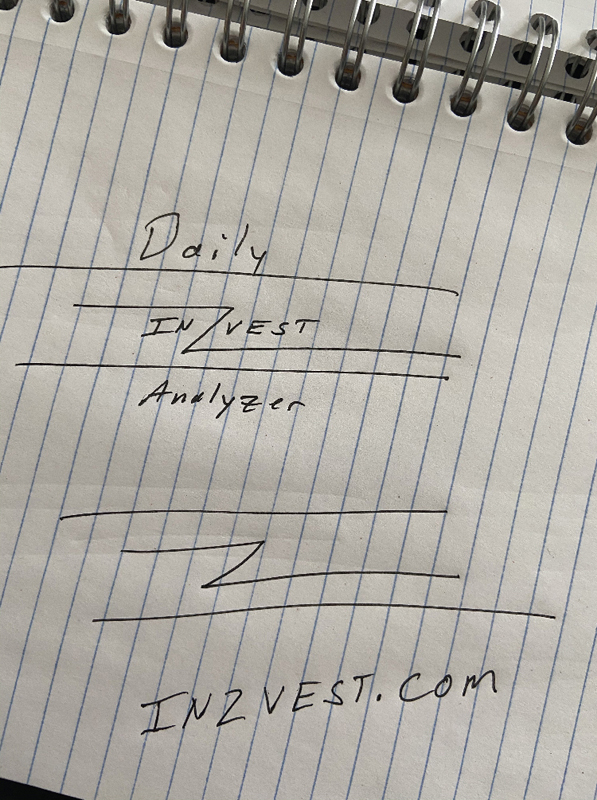 Daily
INZVEST
Analyzer
Z
INZVEST.COM